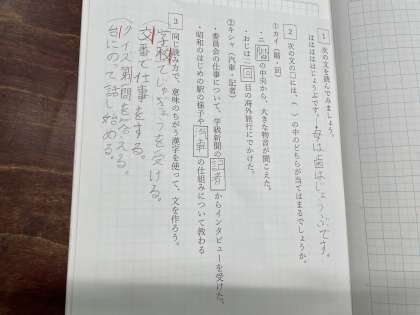 1 次の文を読んでみましょう。
はははははじょうぶです。 母は歯はじょうぶです。
2 次の文の□には、( )の中のどちらが当てはまるでしょうか。
①カイ(階・回)
・二階の中央から、大きな物音が聞こえた。
・おじは二回目の海外旅行にでかけた。
②キシャ(汽車・記者)
・委員会の仕事について、学級新聞の記者からインタビューを受けた。
・昭和のはじめの駅の様子や汽車の仕組みについて教わる
3 同じ読み方で、意味のちがう漢字を使って、文を作ろう。
学校でじゅぎょうを受ける。
文番で仕事をする。
クイズ第一問を答える。
台にのって話し始める。